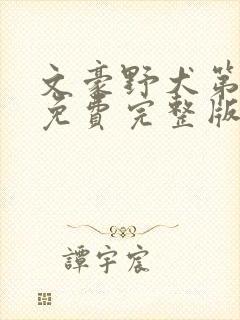 文豪野犬第
免費完整版
譚宇宸